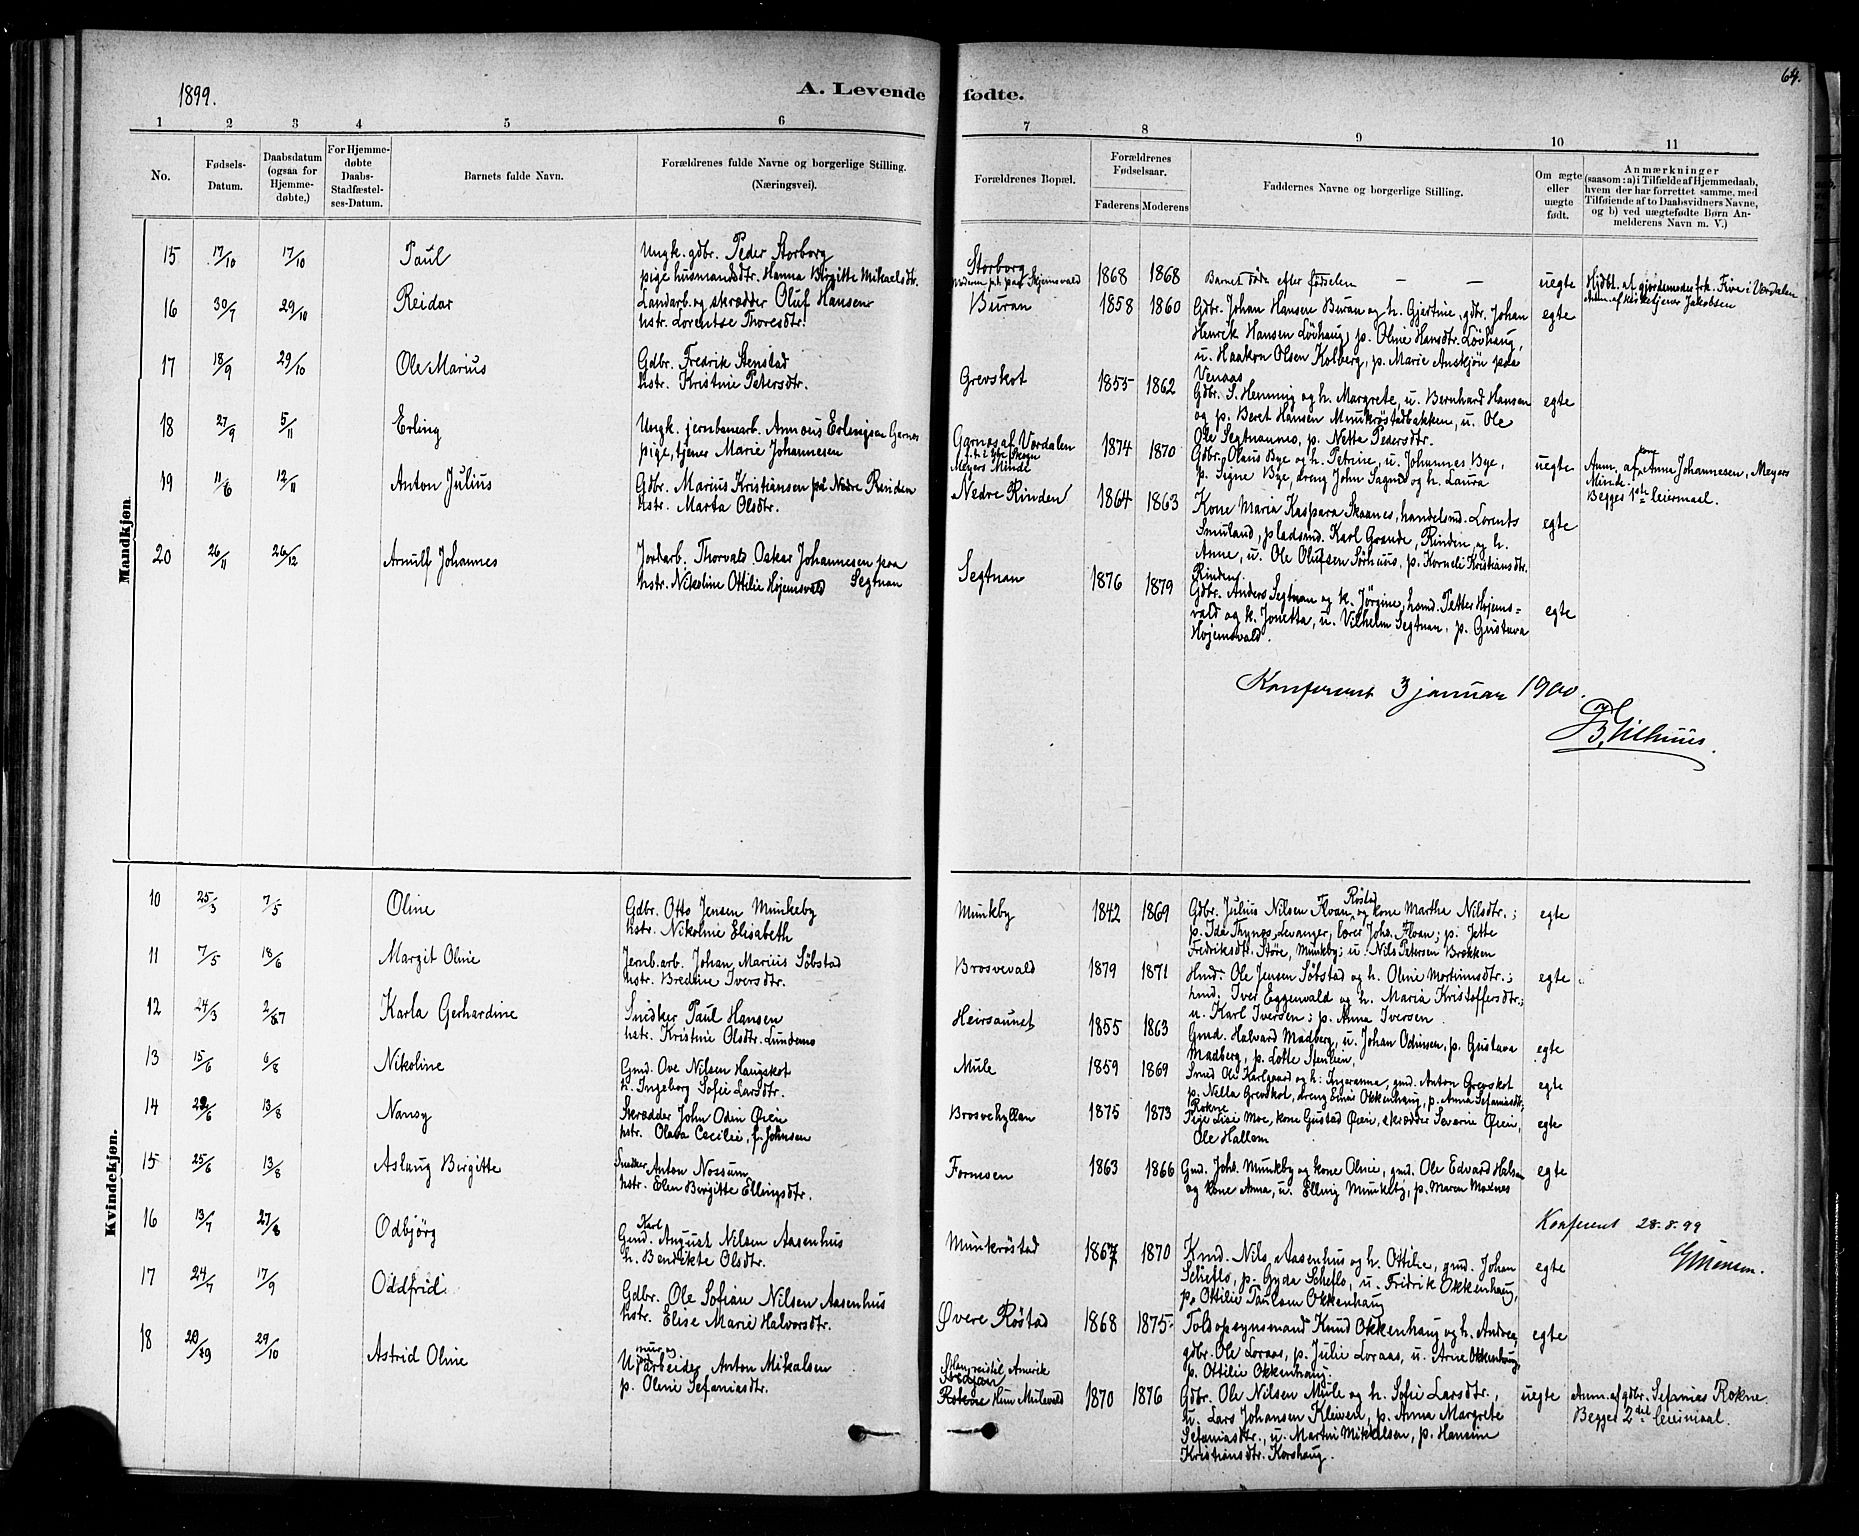 1899.
A. Levende fødte.
64.
1 2 3 4 5 6 7 8 9 10 11
No.
Fødsels-Datum.
Daabsdatum (ogsaa for Hjemme-døbte.)
For Hjemme-døbte Daabs-Stadfæstel-ses-Datum.
Barnets fulde Navn.
Forældrenes fulde Navne og borgerlige Stilling. (Næringsvei).
Forældrenes Bopæl.
Forældrenes Fødselsaar.
Faderens Moderens
Faddernes Navne og borgerlige Stilling.
Om ægte eller uægte født.
Anmærkninger (saasom: a) i Tilfælde af Hjemmedaab, hvem der har forrettet samme, med Tilføiende af to Daabsvidners Navne, og b) ved uægtefødte Børn Anmelderens Navn m. V.)
Mandkjøn.
15 17/10 17/10 Paul
Ungk. gdbr. Peder Storborg
pige husmandsdtr. Hanna Birgitte Mikaelsdtr.
Storborg
1868 1868
Barnet døde efter fødselen — —
uegte
Hjdbt. af gjordemoder frk. Five i Værdalen
Anm. af kirketjener Jakobsen
16 30/7 29/10 Reidar
Landarb. og skrædder Oluf Hansen
hstr. Lorentse Thoresdtr.
Buran
1858 1860
Gdbr. Johan Hansen Buran og h. Gjertine, gdbr. Johan
Henrik Hansen Løvhaug, p. Oline Hansdtr. Løvhaug,
u. Haakon Olsen Kolberg, p. Marie Anskjøn paa
Venaas
egte
17 18/9 29/10 Ole Marius
Gdbr. Fredrik Stenstad
hstr. Kristine Petersdtr.
Grevskot
1855 1862
Gdbr. S. Henning og h. Margrete, u. Bernhard Hansen
og p. Beret Hansen Munkrøstadbakken, u. Ole
Ole Segtnanmo, p. Netta Pedersdtr.
egte
18 27/9 5/11 Erling
Ungk. jernbanearb. Annæus Erlingsen Garnes
pige, tjener Marie Johannesen
Garnes af Værdalen
Meyers Minde
1874 1870
Gdbr. Olaus Bye og h. Petrine, u. Johannes Bye,
p. Signe Bye, dreng John Sagmo og h. Laura
uegte
Anm. af Anna Johannesen, Meyers
Minde.
Begges 1ste leiermaal.
19 11/6 12/11 Anton Julius
Gdbr. Marius Kristiansen på Nedre Rinden
hstr. Marta Olsdtr.
Nedre Rinden
1864 1863
Kone Maria Kaspara Skaanes, handelsmd. Lorents
Smuland, pladsmd. Karl Grande, Rinden og h.
Anne, u. Ole Olufsen Sørhuus, p. Korneli Kristiansdtr.
Rinden.
egte
20 26/11 26/12 Arnulf Johannes
Jordarb. Thorvald Oskar Johannesen paa
Segtnan
hstr. Nikoline Ottilie Højemsvald
Segtnan
1876 1879
Gdbr. Anders Segtnan og k. Jørgine, hsmd. Petter Hojems=
vald og k. Jonetta, u. Vilhelm Segtnan, p. Gustava
Hojemsvald.
egte
Konfereret 3 januar 1900.
Kvindekjøn.
10 25/3 7/5 Oline
Gdbr. Otto Jensen Munkeby
hstr. Nikoline Elisabeth
Munkby
1842 1869
Røstad
Gdbr. Julius Nilsen Floan og kone Martha Nilsdtr.;
p. Ida Thynes, Levanger, lærer Johs. Floan; p. Jette
Fredriksdtr. Støre, Munkby; u. Nils Petersen Brækken
egte
11 7/5 18/6 Margit Oline
Jernb.arb. Johan Marius Söbstad
hstr. Bredine Iversdtr.
Brosvevald
1879 1871
Hmd. Ole Jensen Söbstad og h. Oline Mortinusdtr.;
hmd. Iver Eggenvald og h. Maria Kristoffersdtr;
u. Karl Iversen; p. Anna Iversen
egte
12 24/3 2/7 Karla Gerhardine
Snidker Paul Hansen
hstr. Kristine Olsdtr. Lundemo
Heirsaunet
1855 1863
Gmd. Halvard Madberg, u. Johan Odinsen, p. Gustava
Madberg, p. Lotte Stenlien,
egte
13 15/6 6/8 Nikoline
Gmd. Ove Nilsen Haugskot
h. Ingeborg Sofie Larsdtr.
Mule
1859 1869
Smed Ole Karlgaard og h: Ingeranna, gmd. Anton Grevskot
p. Nella Grevskot, dreng Einar Okkenhaug, p. Anna Sefaniasdtr;
Rokne
egte
14 22/6 13/8 Nansy
Skrædder John Odin Øien
hstr. Olava Cecilie, f. Johnsen
Brosvehyllan
1875 1873
Pige Lise Moe, kone Gustad Øien, skrædder Severin Øien,
Ole Hallem
egte
15 25/6 13/8 Aslaug Birgitte
Snidker Anton Nossum
hstr. Elen Birgitte Ellingsdtr.
Fornesen
1863 1866
Gmd. Johs. Munkby og kone Oline, gmd. Ole Edvard Halsan
og kone Anna, u. Elling Munkeby, p. Maren Moxnes
egte
Konfereret 28.8.99
16 13/7 27/8 Odbjörg
Karl
Gmd. August Nilsen Aasenhus
h. Benrikte Olsdtr.
Munkröstad
1867 1870
Kmd. Nils Aasenhus og h. Ottilie, gmd. Johan
Scheflo, p. Gyda Scheflo, u. Fridrik Okkenhaug,
p. Ottilie Paulsen Okkenhaug
egte
17 24/7 17/9 Oddfrid
Gdbr. Ole Sofian Nilsen Aasenhus
hstr. Elise Marie Halvorsdtr.
Øvere Röstad
1868 1875
Toldopsynsmand Knud Okkenhaug og h. Andrea,
gdbr. Ole Loraas, p. Julie Loraas, u. Arne Okkenhaug,
p. Ottilie Okkenhaug.
egte
18 20/9 29/10 Astrid Oline
mur og
U. jarbeider Anton Mikalsen
p. Oline Sefaniasdtr.
Han reist til Amerik
Rokne Hun Mulevald
1870 1876
Gdbr. Ole Nilsen Mule og h. Sofie Larsdtr.,
u. Lars Johansen Kleiven, p. Anna Margrete
Sefaniasdtr., u. Martin Mikkalsen, p. Hansine
Kristiansdtr. Korshaug.
uegte
Anm. af gdbr. Sefanias Rokne.
Begges 2det leiermaal.